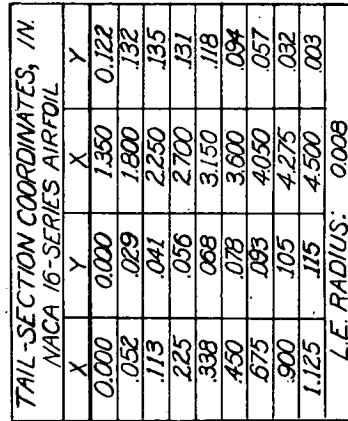 TAIL-SECTION COORDINATES, IN.
NACA 16-SERIES AIRFOIL
X Y X Y
0.000 0.000 1.350 0.122
.052 .029 1.800 .132
.113 .041 2.250 .135
.225 .056 2.700 .131
.338 .068 3.150 .118
.450 .078 3.600 .094
.675 .093 4.050 .057
.900 .105 4.275 .032
1.125 .115 4.500 .003
L.E. RADIUS: 0.008